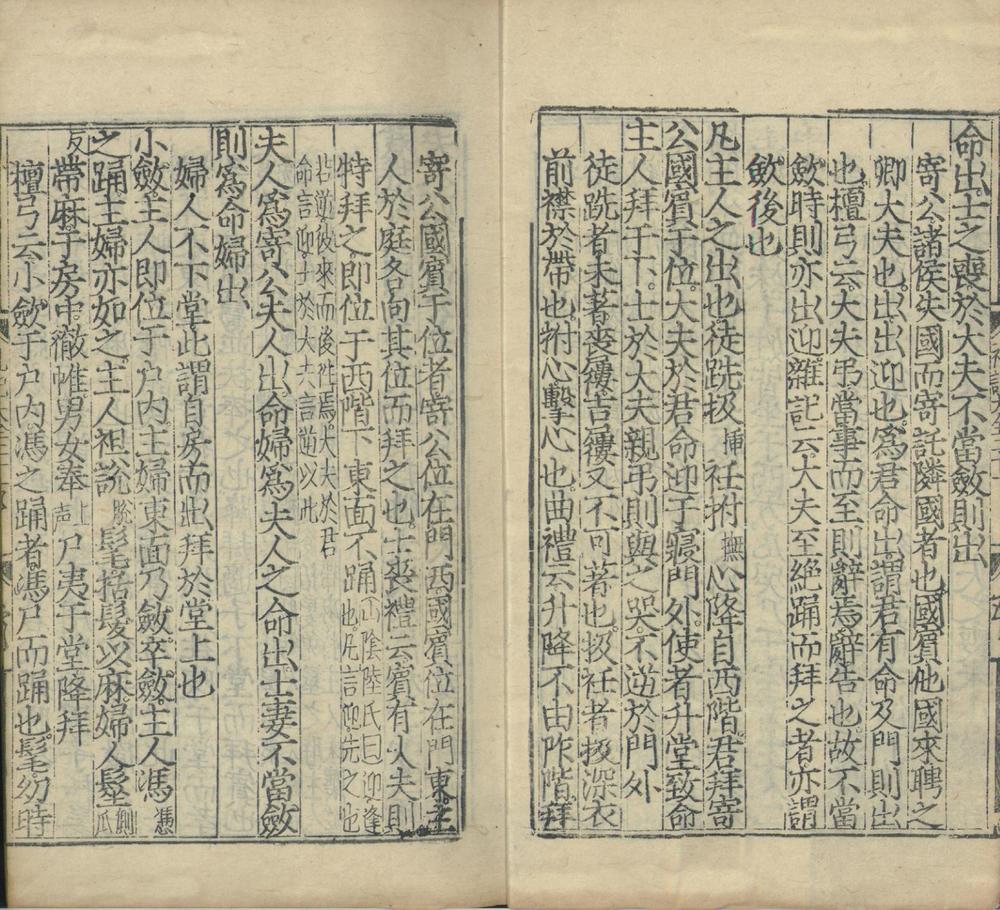 命出士之喪於大夫不當斂則出
寄公諸侯失國而寄託隣國者也國賓他國來聘之
卿大夫也出出迎也爲君命出謂君有命及門則出
也檀弓云大夫弔當事而至則辭焉辭告也故不當
斂時則亦出迎雜記云大夫至絶踊而拜之者亦謂
斂後也
凡主人之出也徒跣扱揷衽拊撫心降自西階君拜寄
公國賓于位大夫於君命迎于寢門外使者升堂致命
主人拜于下士於大夫親弔則與之哭不逆於門外
徒跣者未著喪屨吉屨又不可著也扱衽者扱深衣
前襟於帶也拊心擊心也曲禮云升降不由阼階拜
寄公國賓于位者寄公位在門西國賓位在門東主
人於庭各向其位而拜之也士喪禮云賓有大夫則
特拜之即位于西階下東面不踊山陰陸氏曰迎逢
也凡言迎先之也
若逆彼來而後逆焉大夫於君
命言迎士於大夫言逆以此
夫人爲寄公夫人出命婦爲夫人之命出士妻不當斂
則爲命婦出
婦人不下堂此謂自房而出拜於堂上也
小斂主人即位于戶內主婦東面乃斂卒斂主人馮憑
之踊主婦亦如之主人袒說脫髦括髮以麻婦人髽側瓜
反帶麻于房中徹帷男女奉上声尸夷于堂降拜
檀弓云小斂于户内馮之踊者馮尸而踊也髦幼時